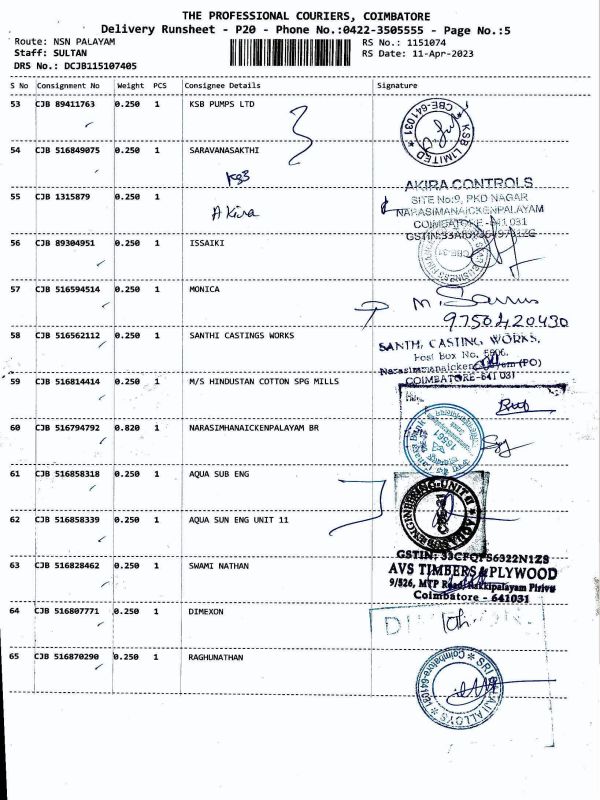 THE PROFESSIONAL COURIERS, COIMBATORE
Delivery Runsheet - P20 - Phone No.:0422-3505555 - Page No.:5
Route: NSN PALAYAM RS No.: 1151074
Staff: SULTAN RS Date: 11-Apr-2023
DRS No.: DCJB115107405
S No Consignment No Weight PCS Consignee Details Signature
53 CJB 89411763 0.250 1 KSB PUMPS LTD
KSB LIMITED * CBE-641031 *
54 CJB 516849075 0.250 1 SARAVANASAKTHI
KSB
AKIRA CONTROLS
55 CJB 1315879 0.250 1
SITE No:9, PKD NAGAR
Akira
NARASIMANAICKENPALAYAM
COIMBATORE - 641 031
56 CJB 89304951 0.250 1 ISSAIKI
57 CJB 516594514 0.250 1 MONICA
9750420430
58 CJB 516562112 0.250 1 SANTHI CASTINGS WORKS
SANTHI CASTING WORKS,
Post Box No.
COIMBATORE-641 031
59 CJB 516814414 0.250 1 M/S HINDUSTAN COTTON SPG MILLS
60 CJB 516794792 0.820 1 NARASIMHANAICKENPALAYAM BR
61 CJB 516858318 0.250 1 AQUA SUB ENG
62 CJB 516858339 0.250 1 AQUA SUN ENG UNIT 11
63 CJB 516828462 0.250 1 SWAMI NATHAN
AVS TIMBERS & PLYWOOD
9/526, MTP Road, Rakkipalayam Pirivu
Coimbatore - 641031
64 CJB 516807771 0.250 1 DIMEXON
65 CJB 516870290 0.250 1 RAGHUNATHAN